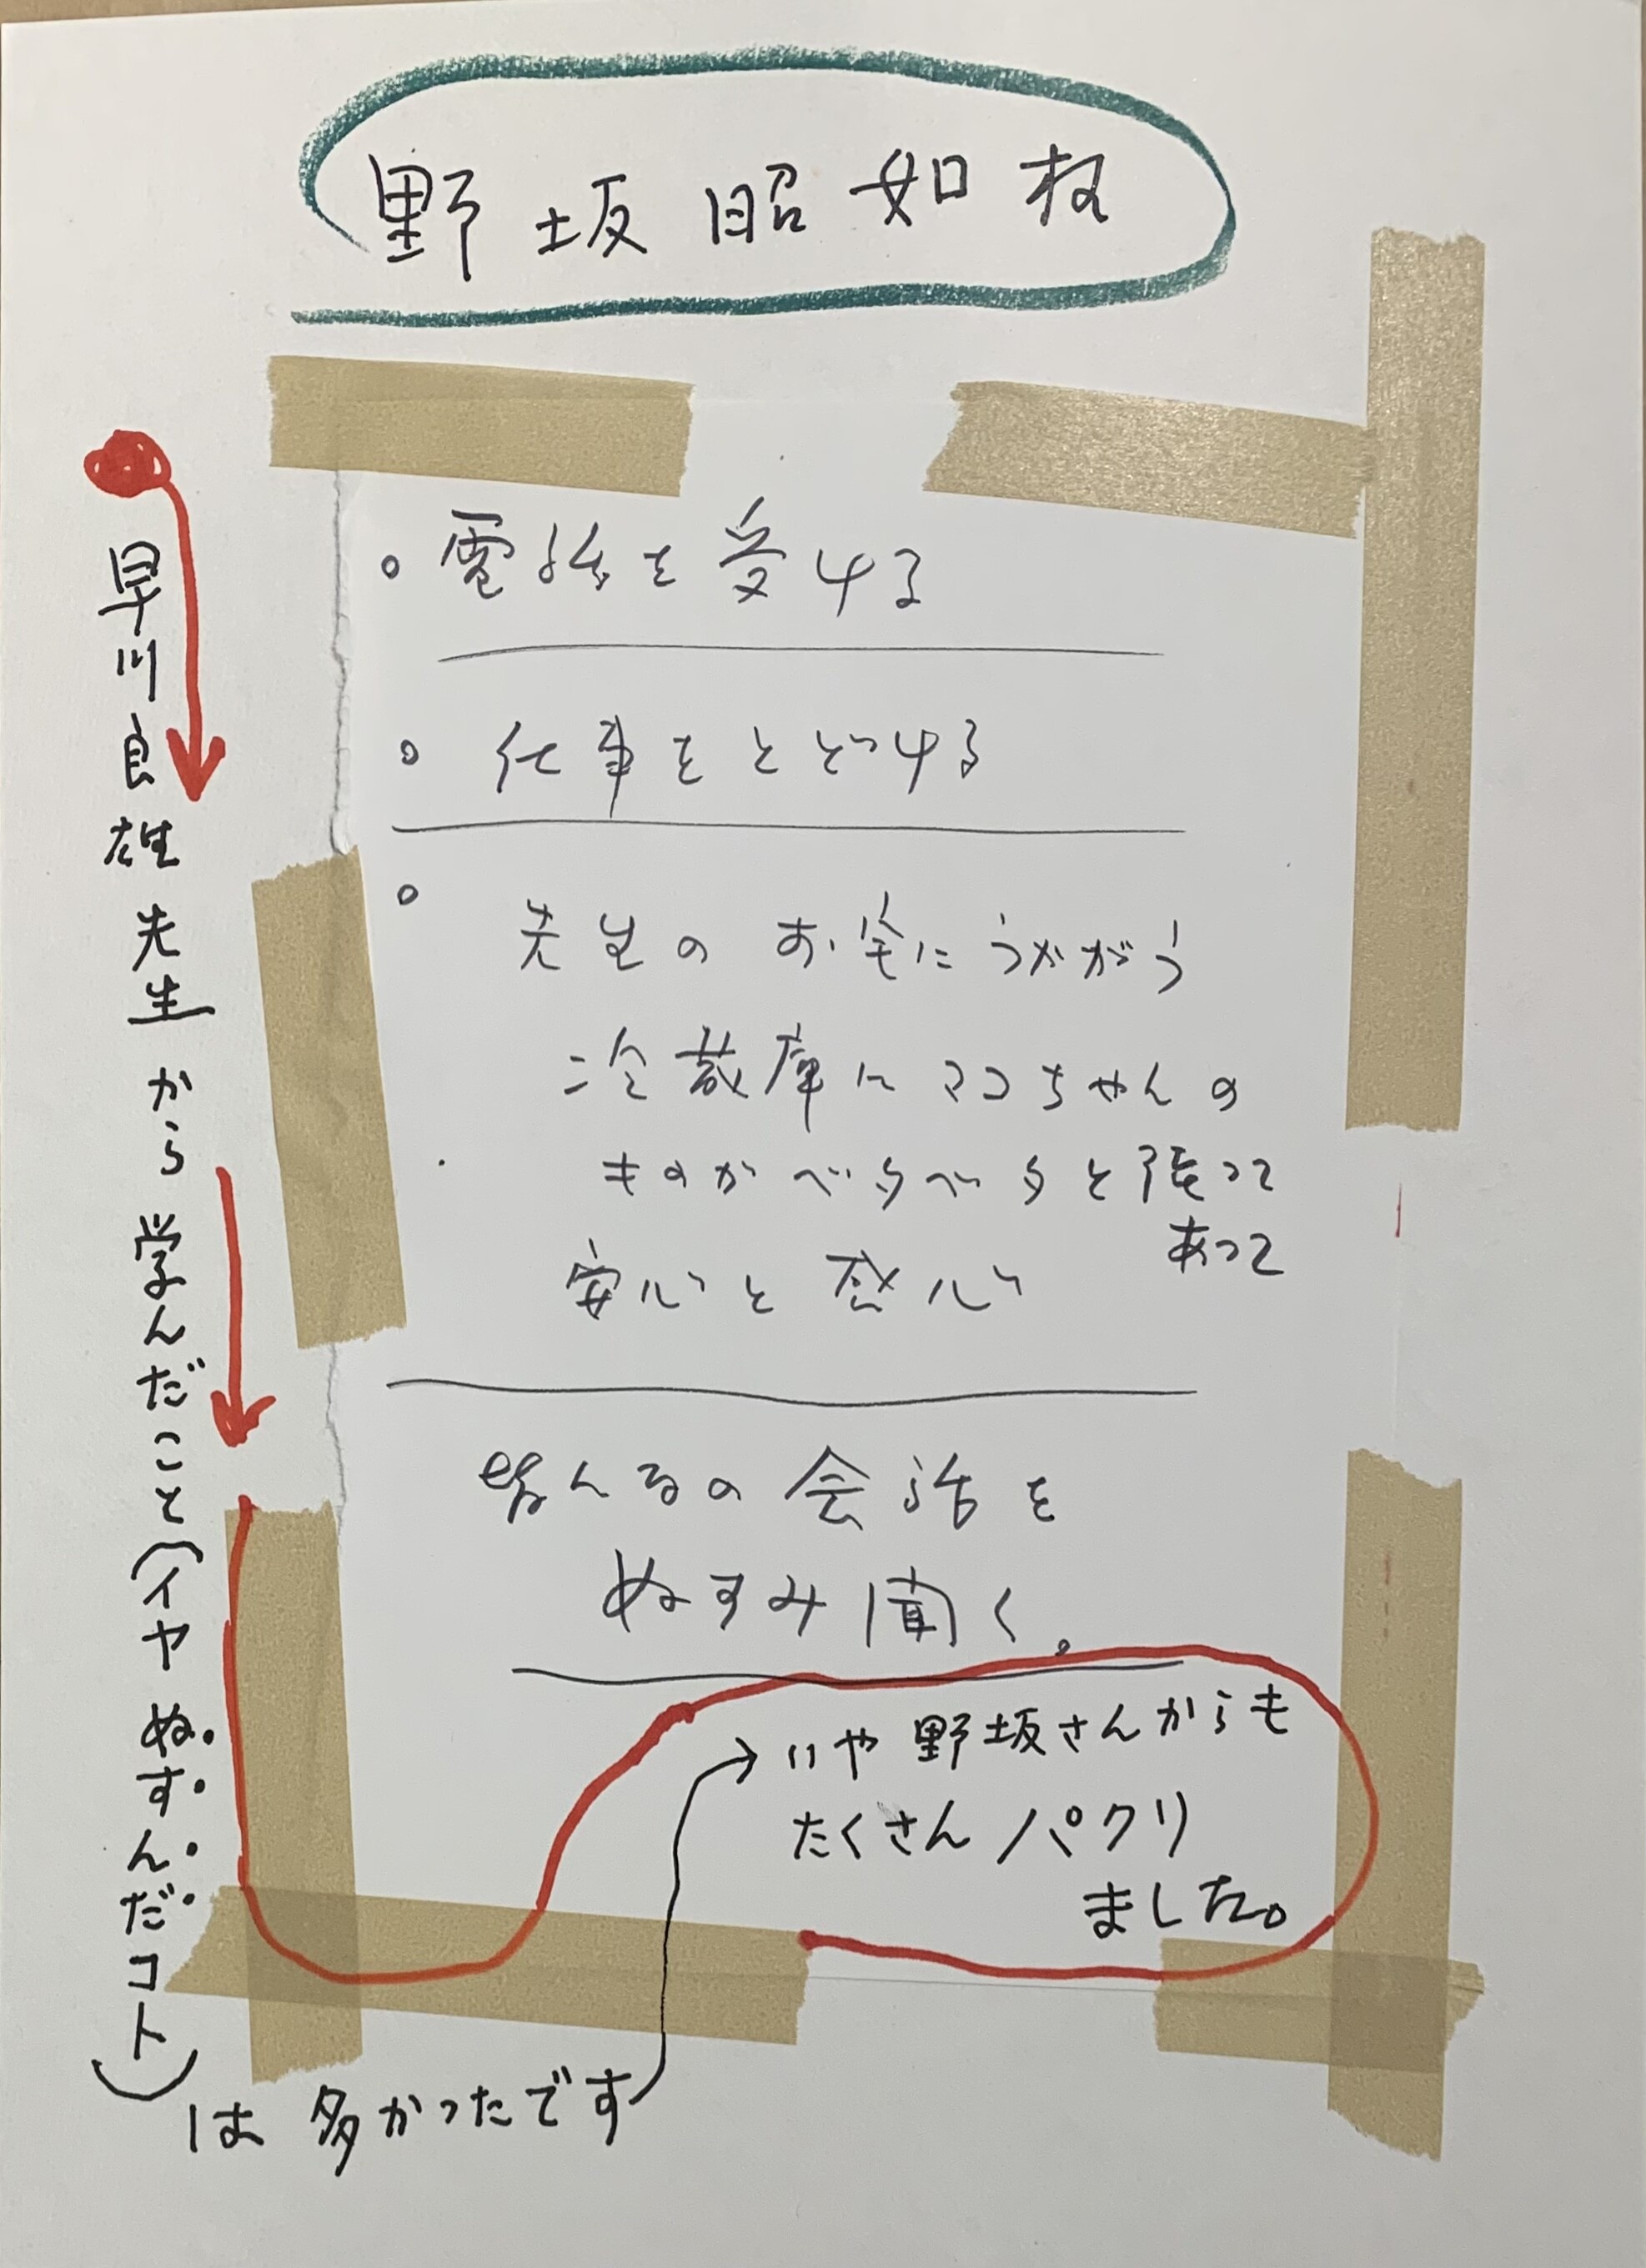 野坂昭如板
。電話を受ける
。仕事をとどける
。先生のお宅にうかがう
冷蔵庫にマコちゃんの
ものがベタベタと張って
あって
安心と感心
の会話を
ぬすみ聞く。
早川良雄先生から学んだこと(イヤぬすんだコト)
は多かったです
いや野坂さんからも
たくさんパクリ
ました。